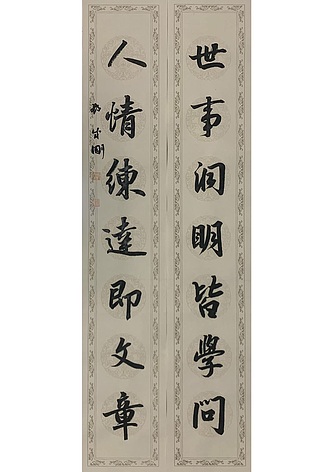 世事洞明皆學問
人情練達即文章